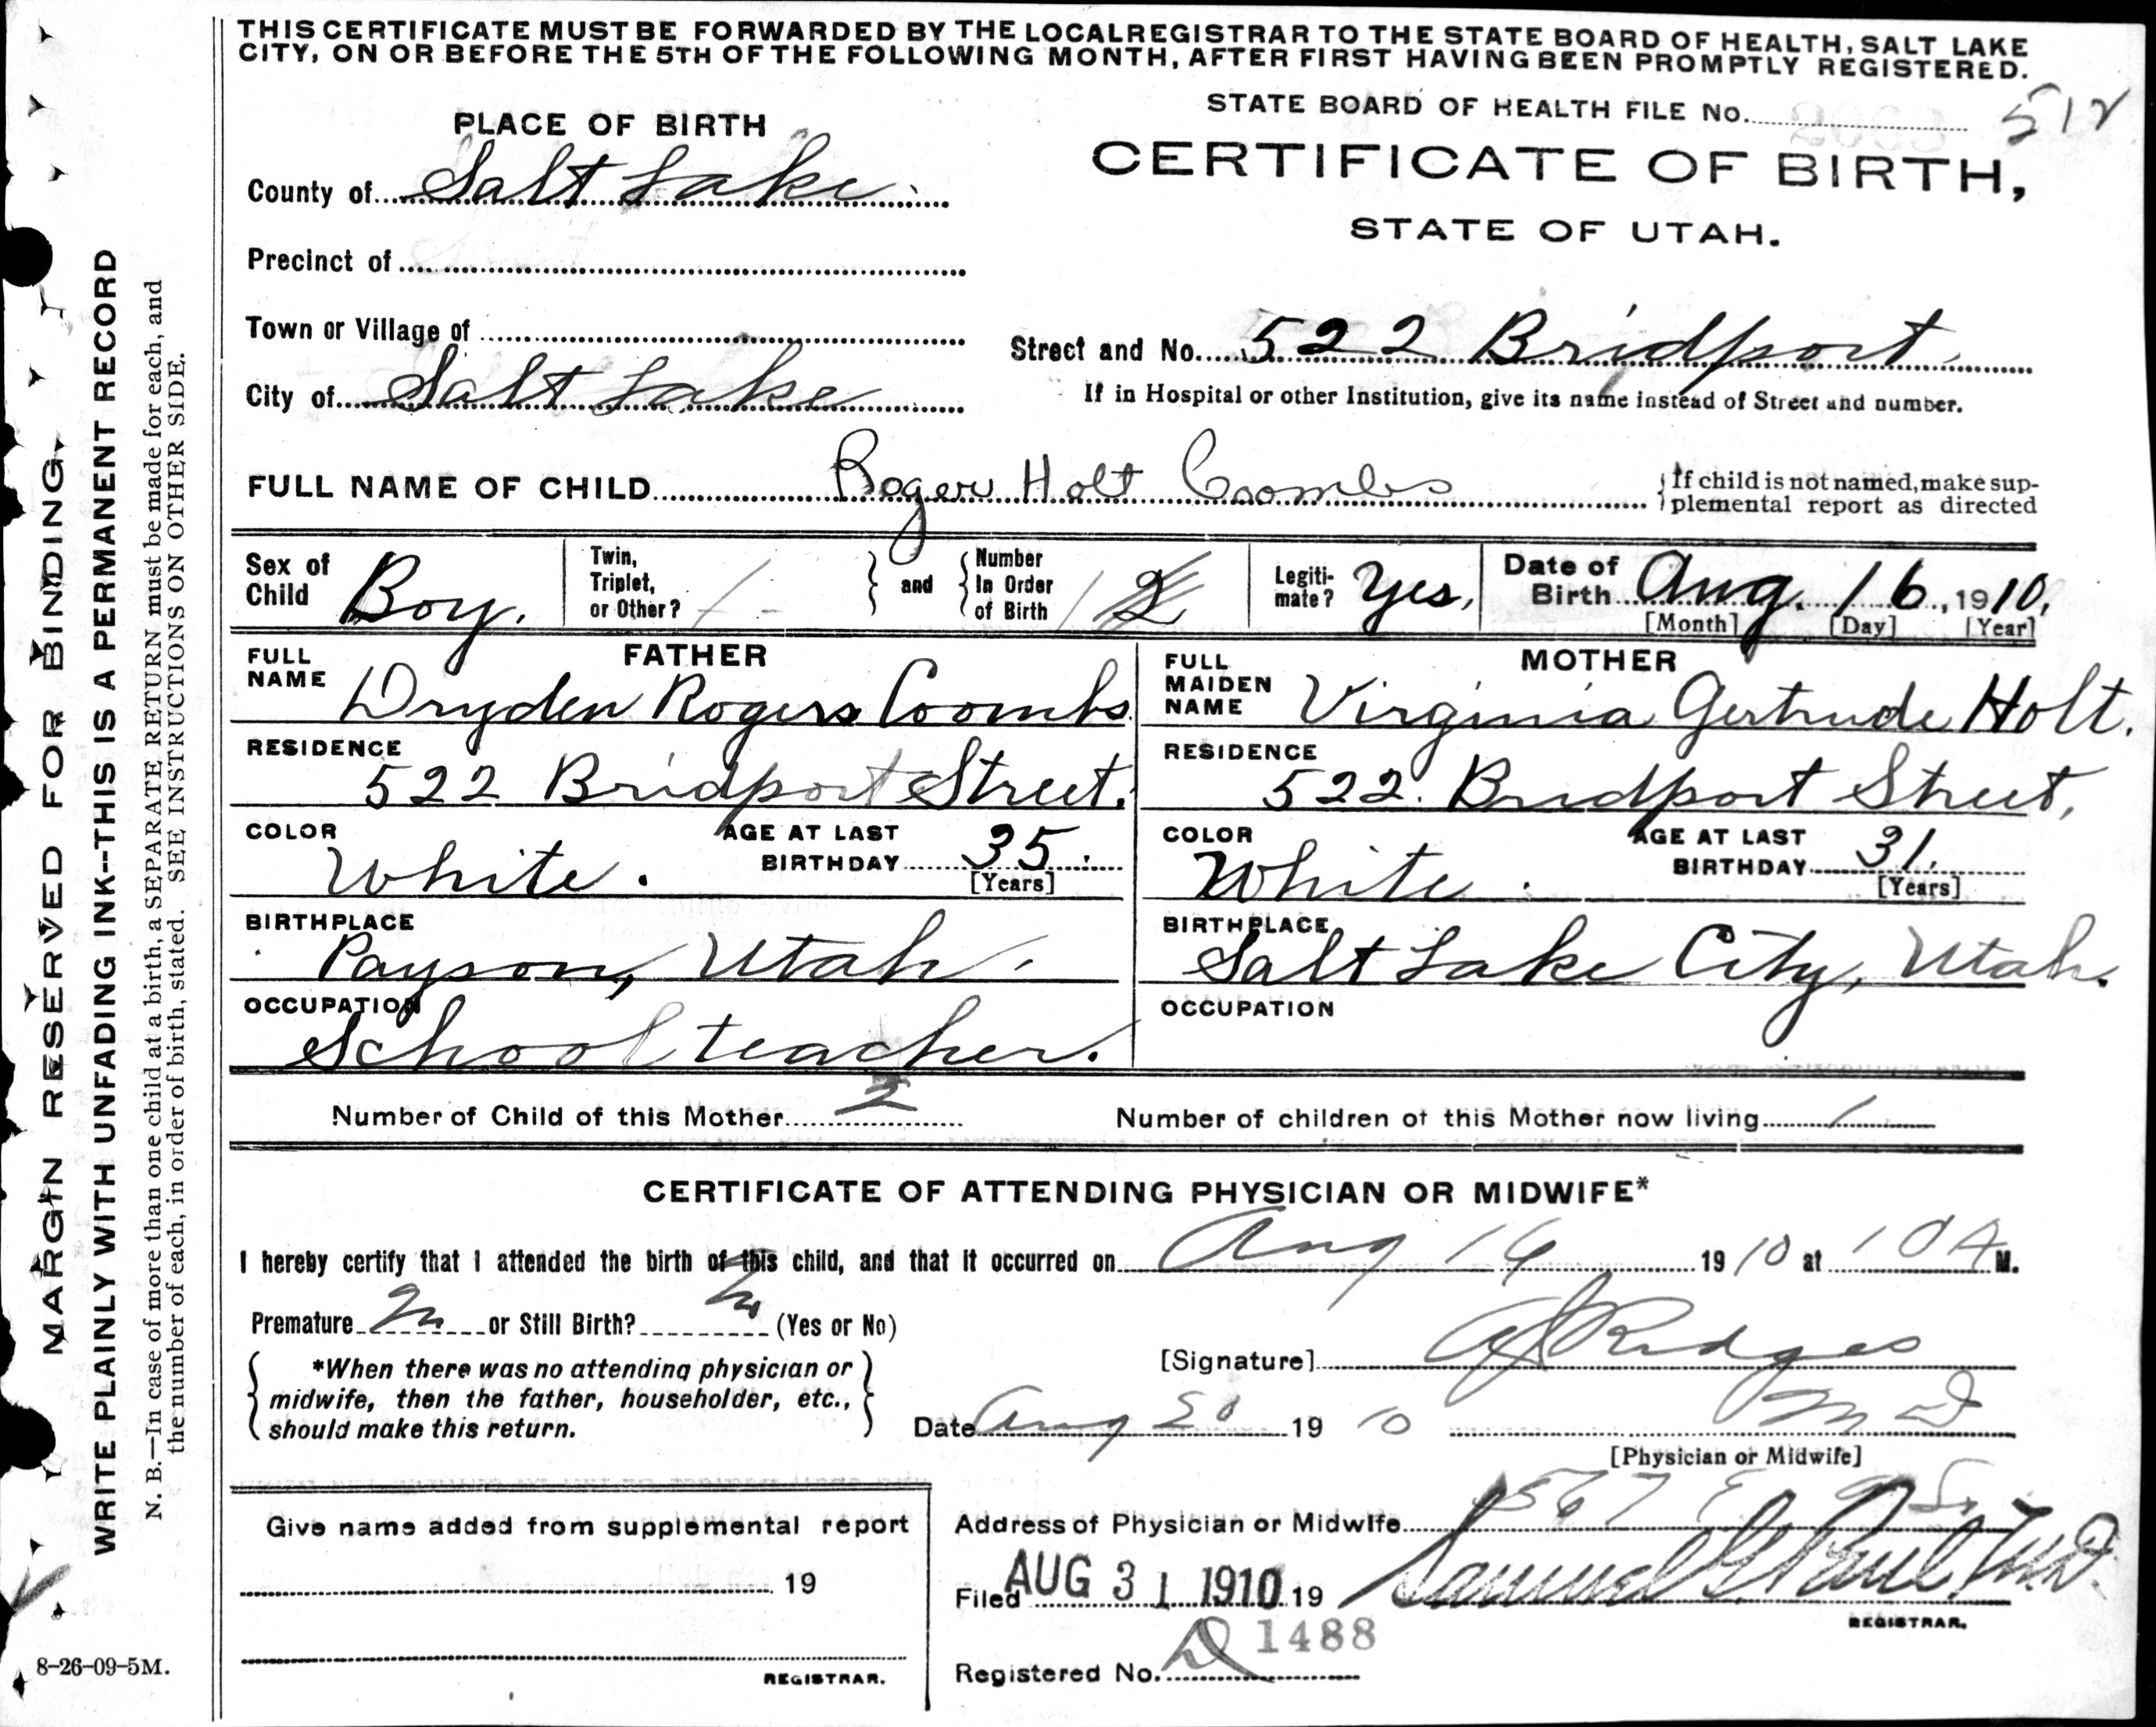 THIS CERTIFICATE MUST BE FORWARDED BY THE LOCAL REGISTRAR TO THE STATE BOARD OF HEALTH, SALT LAKE
CITY, ON OR BEFORE THE 5TH OF THE FOLLOWING MONTH, AFTER FIRST HAVING BEEN PROMPTLY REGISTERED.
STATE BOARD OF HEALTH FILE No. 512
PLACE OF BIRTH
CERTIFICATE OF BIRTH,
STATE OF UTAH.
County of Salt Lake
Precinct of
Town or Village of
Street and No. 522 Bridport
City of Salt Lake
If in Hospital or other Institution, give its name instead of Street and number.
FULL NAME OF CHILD Roger Holt Coombs
If child is not named, make sup-
plemental report as directed
Sex of Child Boy.
Twin, Triplet, or Other?
and
Number In Order of Birth 2
Legiti-mate? Yes,
Date of Birth Aug. 16, 1910,
[Month] [Day] [Year]
FATHER
FULL NAME Dryden Rogers Coombs
RESIDENCE
522 Bridport Street.
COLOR White.
AGE AT LAST BIRTHDAY 35.
[Years]
BIRTHPLACE
Payson, Utah.
OCCUPATION
School teacher.
MOTHER
FULL MAIDEN NAME Virginia Gertrude Holt.
RESIDENCE
522. Bridport Street,
COLOR White.
AGE AT LAST BIRTHDAY 31.
[Years]
BIRTHPLACE
Salt Lake City, Utah.
OCCUPATION
Number of Child of this Mother 2
Number of children of this Mother now living 1
CERTIFICATE OF ATTENDING PHYSICIAN OR MIDWIFE*
I hereby certify that I attended the birth of this child, and that it occurred on Aug 16 1910 at 10 A M.
Premature No or Still Birth? No (Yes or No)
*When there was no attending physician or
midwife, then the father, householder, etc.,
should make this return.
[Signature] Ridges
Date Aug 1910 M D
[Physician or Midwife]
Give name added from supplemental report
19
REGISTRAR.
Address of Physician or Midwife 567 E
Filed AUG 31 1910 19 Samuel G. Paul, M.D.
REGISTRAR.
Registered No. 1488
MARGIN RESERVED FOR BINDING.
WRITE PLAINLY WITH UNFADING INK--THIS IS A PERMANENT RECORD
N. B.—In case of more than one child at a birth, a SEPARATE RETURN must be made for each, and
the number of each, in order of birth, stated. SEE INSTRUCTIONS ON OTHER SIDE.
8-26-09-5M.